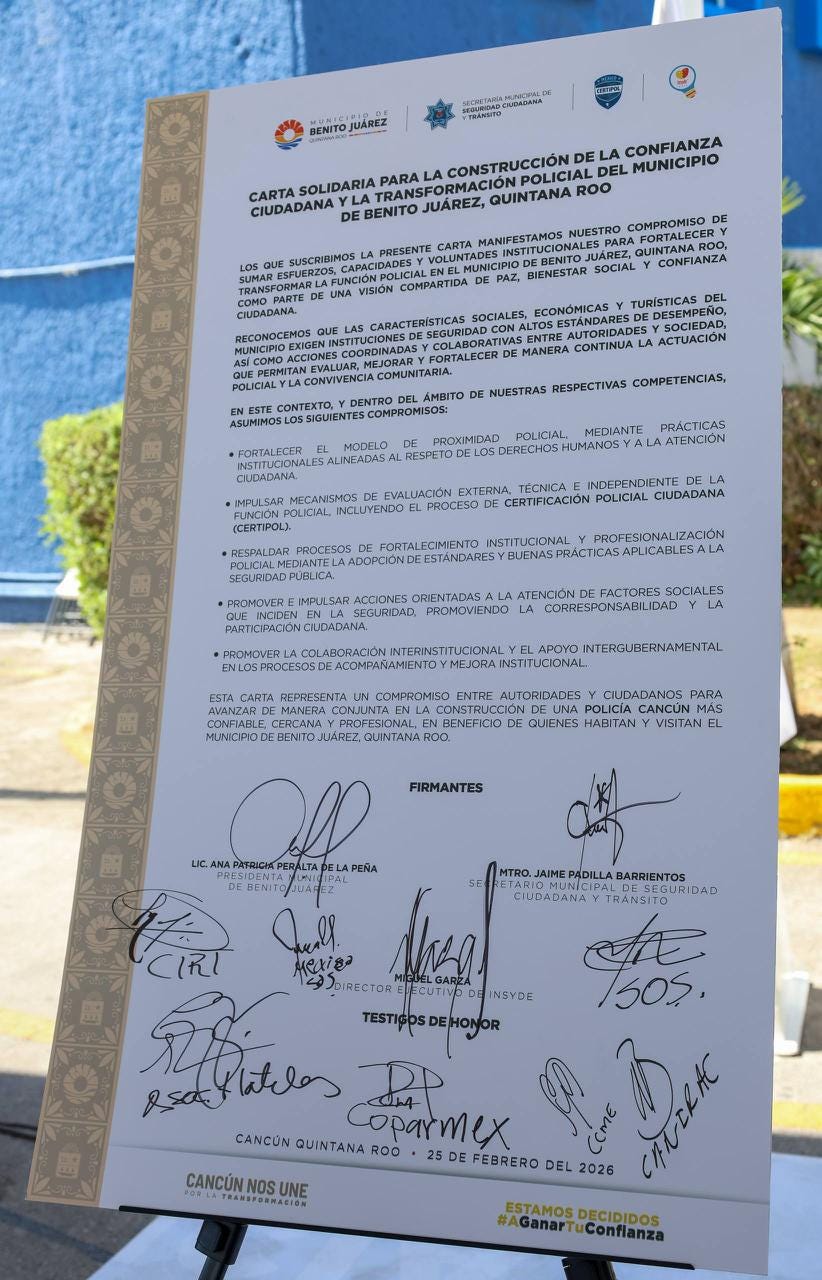 MUNICIPIO DE
BENITO JUÁREZ
QUINTANA ROO
SECRETARÍA MUNICIPAL DE
SEGURIDAD CIUDADANA
Y TRÁNSITO
MÉXICO
CERTIPOL
CARTA SOLIDARIA PARA LA CONSTRUCCIÓN DE LA CONFIANZA
CIUDADANA Y LA TRANSFORMACIÓN POLICIAL DEL MUNICIPIO
DE BENITO JUÁREZ, QUINTANA ROO
LOS QUE SUSCRIBIMOS LA PRESENTE CARTA MANIFESTAMOS NUESTRO COMPROMISO DE
SUMAR ESFUERZOS, CAPACIDADES Y VOLUNTADES INSTITUCIONALES PARA FORTALECER Y
TRANSFORMAR LA FUNCIÓN POLICIAL EN EL MUNICIPIO DE BENITO JUÁREZ, QUINTANA ROO,
COMO PARTE DE UNA VISIÓN COMPARTIDA DE PAZ, BIENESTAR SOCIAL Y CONFIANZA
CIUDADANA.
RECONOCEMOS QUE LAS CARACTERÍSTICAS SOCIALES, ECONÓMICAS Y TURÍSTICAS DEL
MUNICIPIO EXIGEN INSTITUCIONES DE SEGURIDAD CON ALTOS ESTÁNDARES DE DESEMPEÑO,
ASÍ COMO ACCIONES COORDINADAS Y COLABORATIVAS ENTRE AUTORIDADES Y SOCIEDAD,
QUE PERMITAN EVALUAR, MEJORAR Y FORTALECER DE MANERA CONTINUA LA ACTUACIÓN
POLICIAL Y LA CONVIVENCIA COMUNITARIA.
EN ESTE CONTEXTO, Y DENTRO DEL ÁMBITO DE NUESTRAS RESPECTIVAS COMPETENCIAS,
ASUMIMOS LOS SIGUIENTES COMPROMISOS:
• FORTALECER EL MODELO DE PROXIMIDAD POLICIAL, MEDIANTE PRÁCTICAS
INSTITUCIONALES ALINEADAS AL RESPETO DE LOS DERECHOS HUMANOS Y A LA ATENCIÓN
CIUDADANA.
• IMPULSAR MECANISMOS DE EVALUACIÓN EXTERNA, TÉCNICA E INDEPENDIENTE DE LA
FUNCIÓN POLICIAL, INCLUYENDO EL PROCESO DE CERTIFICACIÓN POLICIAL CIUDADANA
(CERTIPOL).
• RESPALDAR PROCESOS DE FORTALECIMIENTO INSTITUCIONAL Y PROFESIONALIZACIÓN
POLICIAL MEDIANTE LA ADOPCIÓN DE ESTÁNDARES Y BUENAS PRÁCTICAS APLICABLES A LA
SEGURIDAD PÚBLICA.
• PROMOVER E IMPULSAR ACCIONES ORIENTADAS A LA ATENCIÓN DE FACTORES SOCIALES
QUE INCIDEN EN LA SEGURIDAD, PROMOVIENDO LA CORRESPONSABILIDAD Y LA
PARTICIPACIÓN CIUDADANA.
• PROMOVER LA COLABORACIÓN INTERINSTITUCIONAL Y EL APOYO INTERGUBERNAMENTAL
EN LOS PROCESOS DE ACOMPAÑAMIENTO Y MEJORA INSTITUCIONAL.
ESTA CARTA REPRESENTA UN COMPROMISO ENTRE AUTORIDADES Y CIUDADANOS PARA
AVANZAR DE MANERA CONJUNTA EN LA CONSTRUCCIÓN DE UNA POLICÍA CANCÚN MÁS
CONFIABLE, CERCANA Y PROFESIONAL, EN BENEFICIO DE QUIENES HABITAN Y VISITAN EL
MUNICIPIO DE BENITO JUÁREZ, QUINTANA ROO.
FIRMANTES
LIC. ANA PATRICIA PERALTA DE LA PEÑA
PRESIDENTA MUNICIPAL
DE BENITO JUÁREZ
MTRO. JAIME PADILLA BARRIENTOS
SECRETARIO MUNICIPAL DE SEGURIDAD
CIUDADANA Y TRÁNSITO
CIRI
MEXICO
SOS
SOS.
MIGUEL GARZA
DIRECTOR EJECUTIVO DE INSYDE
TESTIGOS DE HONOR
COPARMEX
CCME
CANIRAC
CANCÚN QUINTANA ROO • 25 DE FEBRERO DEL 2026
CANCÚN NOS UNE
POR LA TRANSFORMACIÓN
ESTAMOS DECIDIDOS
#AGanarTuConfianza